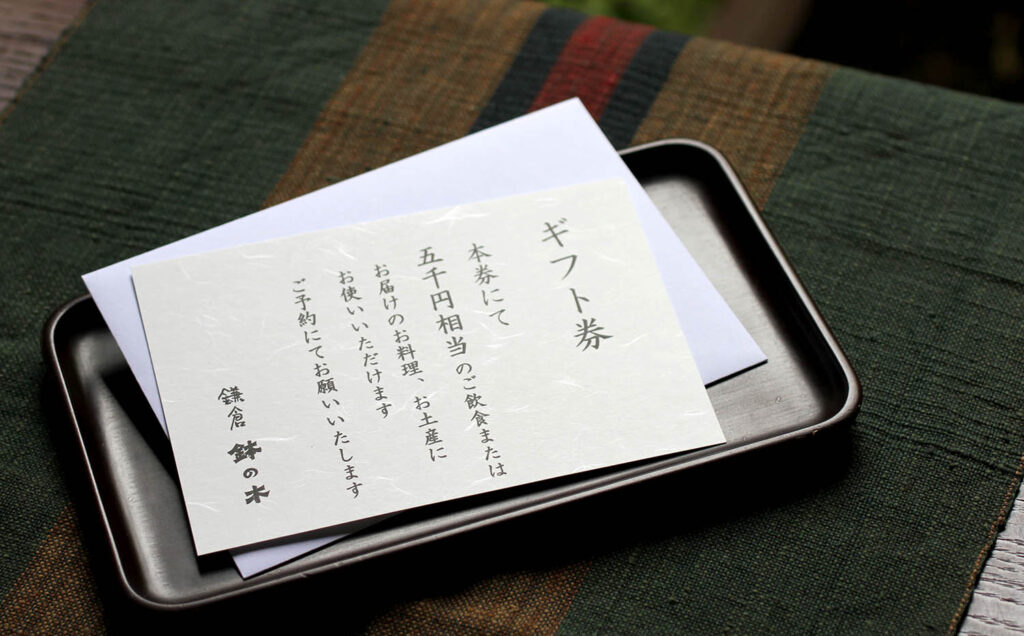 ギフト券
本券にて
五千円相当のご飲食または
お届けのお料理、お土産に
お使いいただけます
ご予約にてお願いいたします
鎌倉 鉢の木